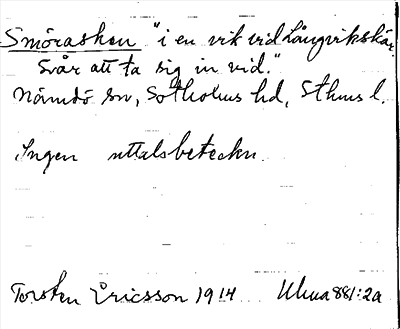 Smörasken "i en vik vid Långvikskär.
Svår att ta sig in vid."
Nämdö sn, Sotholms hd, Sthms l.
Ingen uttalsbeteckn.
Torsten Ericsson 1914 Uluma 881:2a